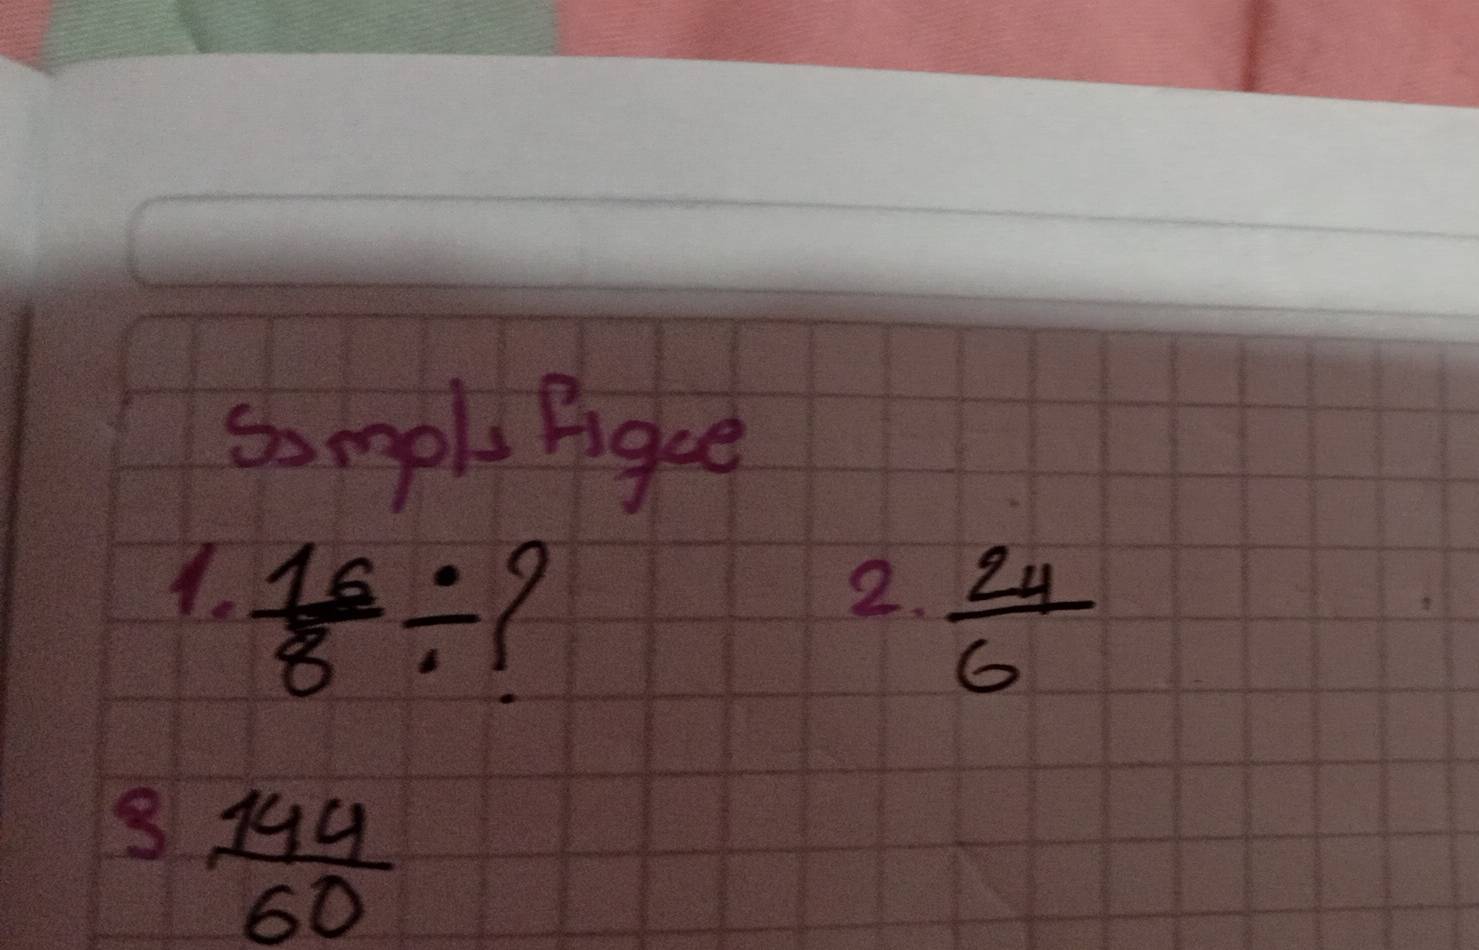 Simplifique
1. 16/8 ÷ ? 2. 24/6
3 144/60